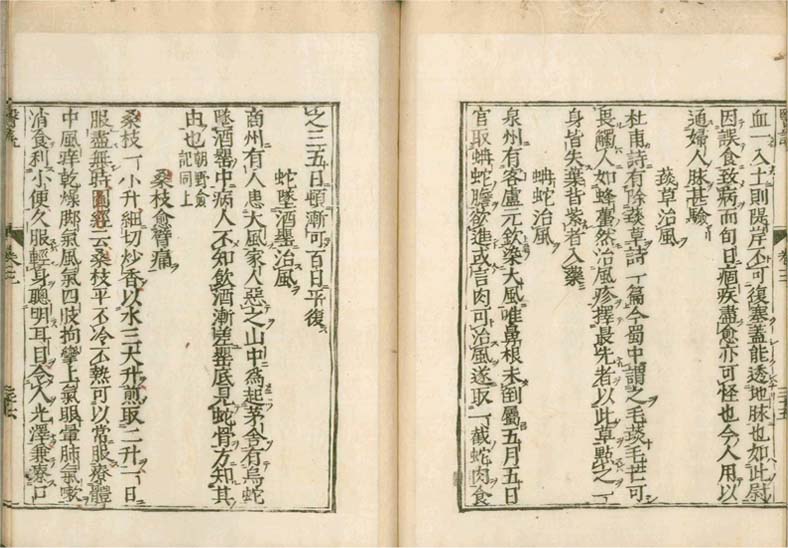 血一入土則隄岸不可復塞蓋能透地脉也如此尉
因誤食致病而旬日痼疾盡愈亦可怪也今人用以
通婦人脉甚驗
䕭草治風
杜甫詩有除䕭草詩一篇今蜀中謂之毛䕭毛芒可
畏觸人如蜂蠆然治風疹擇最先者以此草點之一
身皆失葉背紫者入藥
蚺蛇治風
泉州有客盧元欽染大風唯鼻根未倒屬五月五日
官取蚺蛇膽欲進或言肉可治風遂取一截蛇肉食
之三五日頓漸可百日平復
蛇墜酒罌治風
商州有人患大風家人惡之山中為起茅舍有烏蛇
墜酒罌中病人不知飲酒漸差罌底見蛇骨方知其
由也朝野僉記同上
桑枝愈臂痛
桑枝一小升細切炒香以水三大升煎取二升一日
服盡無時圖經云桑枝平不冷不熱可以常服療體
中風痒乾燥脚氣風氣四肢拘攣上氣眼暈肺氣嗽
消食利小便久服輕身聰明耳目令人光澤兼療口